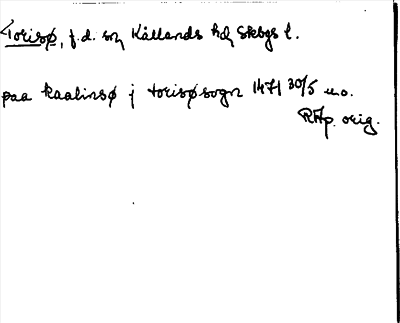 Torisø, f.d. sn, Kållands hd, Skbgs l.
paa kaalinsø j torisøsogn 1471 30/5 u.o.
RAp. orig.